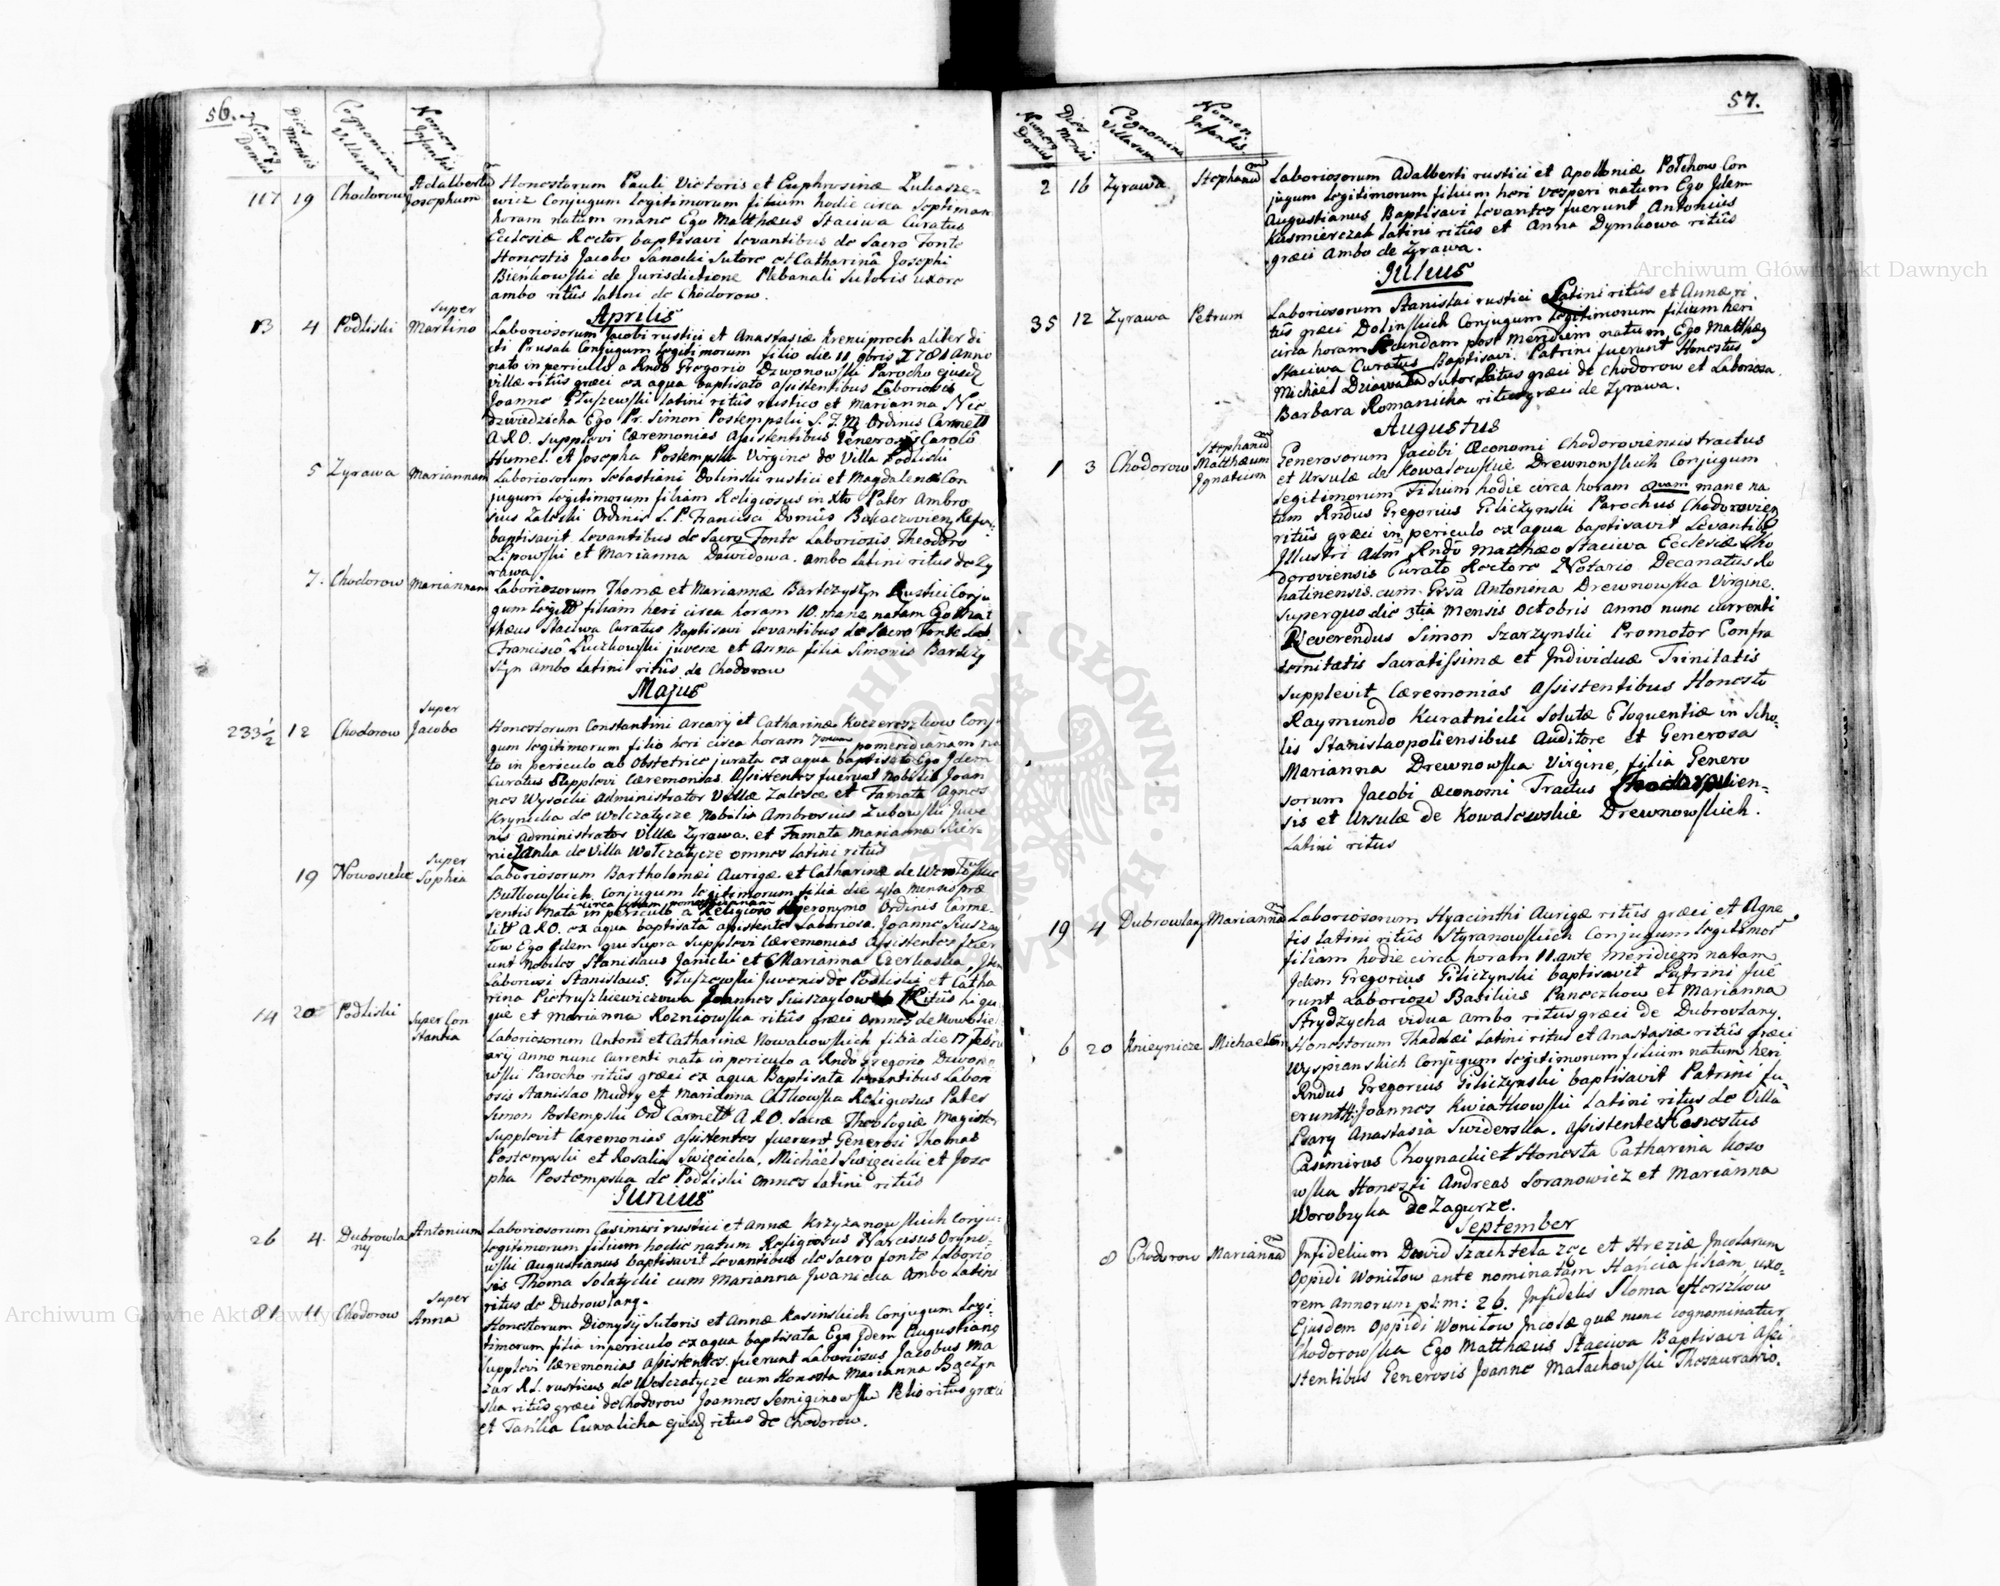 56.
Numerg Domus
Dies Mensis
Cognomina Villarum
Nomen Infantis
117 19 Chodorow Adalbertũ Josephum
Honestorum Pauli Victoris et Euphrosinæ Lukasze=
wicz Conjugum Legitimorum filium hodie circa Septimam
horam natum mane Ego Matthæus Staciwa Curatus
Ecclesiæ Rector baptisavi levantibus de Sacro Fonte
Honestis Jacobo Sanocki Sutore et Catharinâ Josephi
Bieńkowski de Jurisdictione Plebanali Sutoris uxore
ambo ritûs latini de Chodorow.
Aprilis
13 4 Podliski super Martino
Laboriosorum Jacobi rustici et Anastasiæ Kreniproch aliter di
cti Prusak Conjugum Legitimorum filio die 11 9bris 1781 Anno
nato in periculo a Rndo Gregorio Dzwonowski Parocho ejusd
villæ ritûs græci ex aqua baptisato assistentibus Laboriosis
Joanne Głuszewski latini ritûs rustico et Marianna Nie
dzwiedzicha Ego Pr. Simon Postempski S. T. M. Ordinis Carmelt
A R O. Supplevi Cæremonias Assistentibus Generosis Carolô
Humel. et Josepha Postempska Virgine de Villa Podliski
5 Zyrawa Mariannam
Laboriosorum Sebastiani Dolinski rustici et Magdalenæ Con
jugum legitimorum filiam Religiosus in Xto Pater Ambro
sius Zaleski Ordinis S. P. Francisci Domûs Bokaczovien Refor:
baptisavit Levantibus de Sacro Fonte Laboriosis Theodoro
Lipowski et Marianna Dawidowa. ambo Latini ritus de Zy
rawa
7. Chodorow Mariannam
Laboriosorum Thomæ et Mariannæ Bardzystyn Rustici Conju
gum Legitt filiam heri circa horam 10. mane natam Ego Mat
thæus Staciwa Curatus Baptisavi levantibus de Sacro Fonte Lab.
Franciscô Luczkowski juvene et Anna filia Simonis Bardzy
styn ambo latini ritûs de Chodorow
Majus
233½ 12 Chodorow super Jacobo
Honestorum Constantini Arcarÿ et Catharinæ Koczereszkow Conju
gum legitimorum filio heri circa horam 7 pomeridianam na
to in periculo ab Obstetrice jurata ex aqua baptisato Ego Idem
Curatus Supplevi Cæremonias. Assistentes fuerunt Nobilis Joan
nes Wysocki Administrator Villæ Zalesce et Famata Agnes
Krynicka de Wolczatycze Nobilis Ambrosius Zubowski Juve
nis administrator villæ Zyrawa. et Famata Marianna Kier=
niczanka de Villa Wolczatycze omnes latini ritus
19 Nowosielce super Sophia
Laboriosorum Bartholomæi Aurigæ et Catharinæ de
Butkowskich. Conjugum legitimorum filia die 4ta mensis præ
sentis nata circa pomeridianam in periculo a Religioso Hyeronymo Ordinis Carme
litt A R O. ex aqua baptisatâ assistente Laboriosa. Joanne Siuszay
low Ego Idem qui Supra Supplevi Cæremonias Assistentes fuer
unt Nobiles Stanislaus Janicki et Marianna Czerkaska, Item
Laboriosi Stanislaus. Głuszewski Juvenis de Podliski et Catha
rina Pietruszkiewiczowa Joannes Siuszaylow Ritûs hi qu
que et Marianna Rozniowska ritûs græci omnes de Nowosiel.
14 20 Podliski super Constantia
Laboriosorum Antonii et Catharinæ Nowakowskich filia die 17 Febru
arÿ anno nunc currenti nata in periculo a Rndo Gregorio Dzwono
wski Parocho ritûs græci ex aqua Baptisata levantibus Labori
osis Stanislao Mudry et Marianna Catkowska Religiosus Pater
Simon Postempski Ord Carmelt A R O. Sacræ Theologiæ Magister
Supplevit Cæremonias assistentes fuerunt Generosi Thomas
Postempski et Rosalia Swięcicka, Michäel Swięcicki et Jose
pha Postempska de Podliski omnes latini ritûs
Junius
26 4. Dubrowlany Antonium
Laboriosorum Casimiri rustici et Annæ Krzyżanowskich Conju=
legitimorum filium hodie natum Religiosus Narcisus Oryno=
wski Augustianus baptisavit Levantibus de Sacro fonte Laborio
sis Thoma Solatycki cum Marianna Iwanicka Ambo Latini
ritus de Dubrowlany.
81 11. Chodorow super Anna
Honestorum Dionysÿ Sutoris et Annæ Kasinskich Conjugum legi=
timorum filia in periculo ex aqua baptisata Ego Idem Augustiang
Supplevi Cæremonias assistentes. fuerunt Laboriosus Jacobus Ma
zur R L. rusticus de Wolczatycze cum Honesta Marianna Bączyn
ska ritûs græci de Chodorow Joannes Semiginowski Pelio ritus græci
et Tańka Cuwalicha ejusd ritus de Chodorow.
57.
Numerg Domus
Dies Mensis
Cognomina Villarum
Nomen Infantis.
2 16 Zyrawa Stephanũ
Laboriosorum Adalberti rustici et Apolloniæ Polchow Con
jugum legitimorum filium heri vesperi natum Ego Idem
Augustianus Baptisavi levantes fuerunt Antonius
Kusmierczak latini ritûs et Anna Dymkowa ritûs
græci Ambo de Zyrawa.
Julius
35 12 Zyrawa Petrum
Laboriosorum Stanislai rustici Latini ritûs et Annæ ri.
tûs græci Dolinskich Conjugum Legitimorum filium heri
circa horam Secundam post meridiem natum Ego Matthæg
Staciwa Curatus Baptisavi. Patrini fuerunt Honestus
Michäel Dziawala Sutor ritus græci de Chodorow et Laboriosa
Barbara Romanicha ritus græci de Zyrawa.
Augustus
1 3 Chodorow Stephanũ Matthæum Ignatium
Generosorum Jacobi Œconomi Chodoroviensis tractus
et Ursulæ de Kowalewskie Drewnowskich Conjugum
legitimorum Filium hodie circa horam 2vam mane na
tum Rndus Gregorius Giliczynski Parochus Chodorovien
ritûs græci in periculo ex aqua baptisavit Levantibg
Illustri Adm Rndô Matthæo Staciwa Ecclesiæ Cho
doroviensis Curato Rectore Notario Decanatus Ro
hatinensis cum Gssa Antonina Drewnowska Virgine.
Super quo die 3tia Mensis Octobris anno nunc currenti
Reverendus Simon Szarzynski Promotor Confra
ternitatis Sacratissimæ et Individuæ Trinitatis
Supplevit Cæremonias assistentibus Honesto
Raymundo Kuratnicki Solutæ Eloquentiæ in Scho=
lis Stanislaopoliensibus Auditore et Generosa
Marianna Drewnowska Virgine, filia Genero
sorum Jacobi Œconomi Tractus
sis et Ursulæ de Kowalewskie Drewnowskich.
Latini ritus
19 4 Dubrowlany Mariannã
Laboriosorum Hyacinthi Aurigæ ritûs græci et Agne
tis latini ritûs Styranowskich Conjugum legitimor
filiam hodie circa horam 11. ante meridiem natam
Idem Gregorius Giliczynski baptisavit Patrini fue
runt Laboriosi Basilius Paneczkow et Marianna
Strydzycha vidua ambo ritus græci de Dubrowlany.
6 20 Knieynicze Michaelem
Honestorum Thadæi latini ritus et Anastasiæ ritûs græci
Wyspianskich Conjugum legitimorum filium natum heri
Rndus Gregorius Giliczynski baptisavit Patrini fu
erunt H: Joannes Kwiatkowski latini ritus de Villa
Psary Anastasia Swiderska. assistentes Honestus
Casimirus Choynacki et Honesta Catharina Koso
wska Honesti Andreas Soranowicz et Marianna
Worobzyka de Zagurze.
September
8 Chodorow Mariannã
Infidelium Dawid Szachtela et Hreziæ Incolarum
Oppidi Wonitow ante nominatam Hancia filiam, uxo=
rem annorum pl:m: 26. Infidelis Sloma Herszkow
Ejusdem Oppidi Wonitow Incolæ quæ nunc cognominatur
Chodorowska Ego Matthæus Staciwa Baptisavi Assi
stentibus Generosis Joanne Małachowski Thesaurario.
Archiwum Główne Akt Dawnych
Archiwum Główne Akt Dawnych